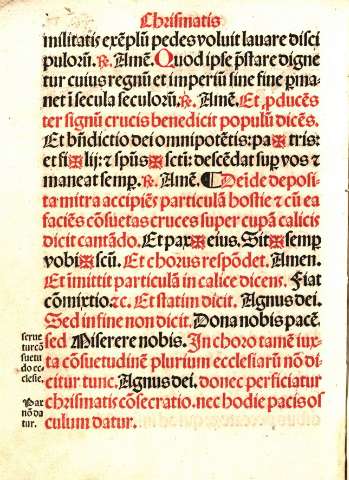 Chrismatis
militatis exēplū pedes voluit lavare disci
pulorū. ℟. Amē. Quod ipse p̄stare digne
tur cuius regnū et imperiū sine fine ꝑma
net ī secula seculorū. ℟. Amē. Et ꝓducēs
ter signū crucis benedicit populū dicēs.
Et bn̄dictio dei omnipotētis: pa✠tris:
et fi✠lij: ⁊ spūs✠sctī: descēdat suꝑ vos ⁊
maneat semꝑ. ℟. Amē. ¶Deīde deposi-
ta mitra accipiēs particulā hostie ⁊ cū ea
faciēs cōsuetas cruces super cupā calicis
dicit cantādo. Et pax✠eius. Sit✠semꝑ
vobi✠scū. Et chorus respōdet. Amen.
Et imittit particulā in calice dicens. Fiat
cōmixtio.⁊c. Et statim dicit. Agnus dei.
Sed infine non dicit. Dona nobis pacē.
sed Miserere nobis. In choro tamē iux-
ta cōsuetudinē plurium ecclesiarū nō di-
citur tunc. Agnus dei. donec perficiatur
chrismatis cōsecratio. nec hodie pacis os
culum datur.
serue
tur cō
suetu
do ec
clesie.
Pax
nō da
tur.